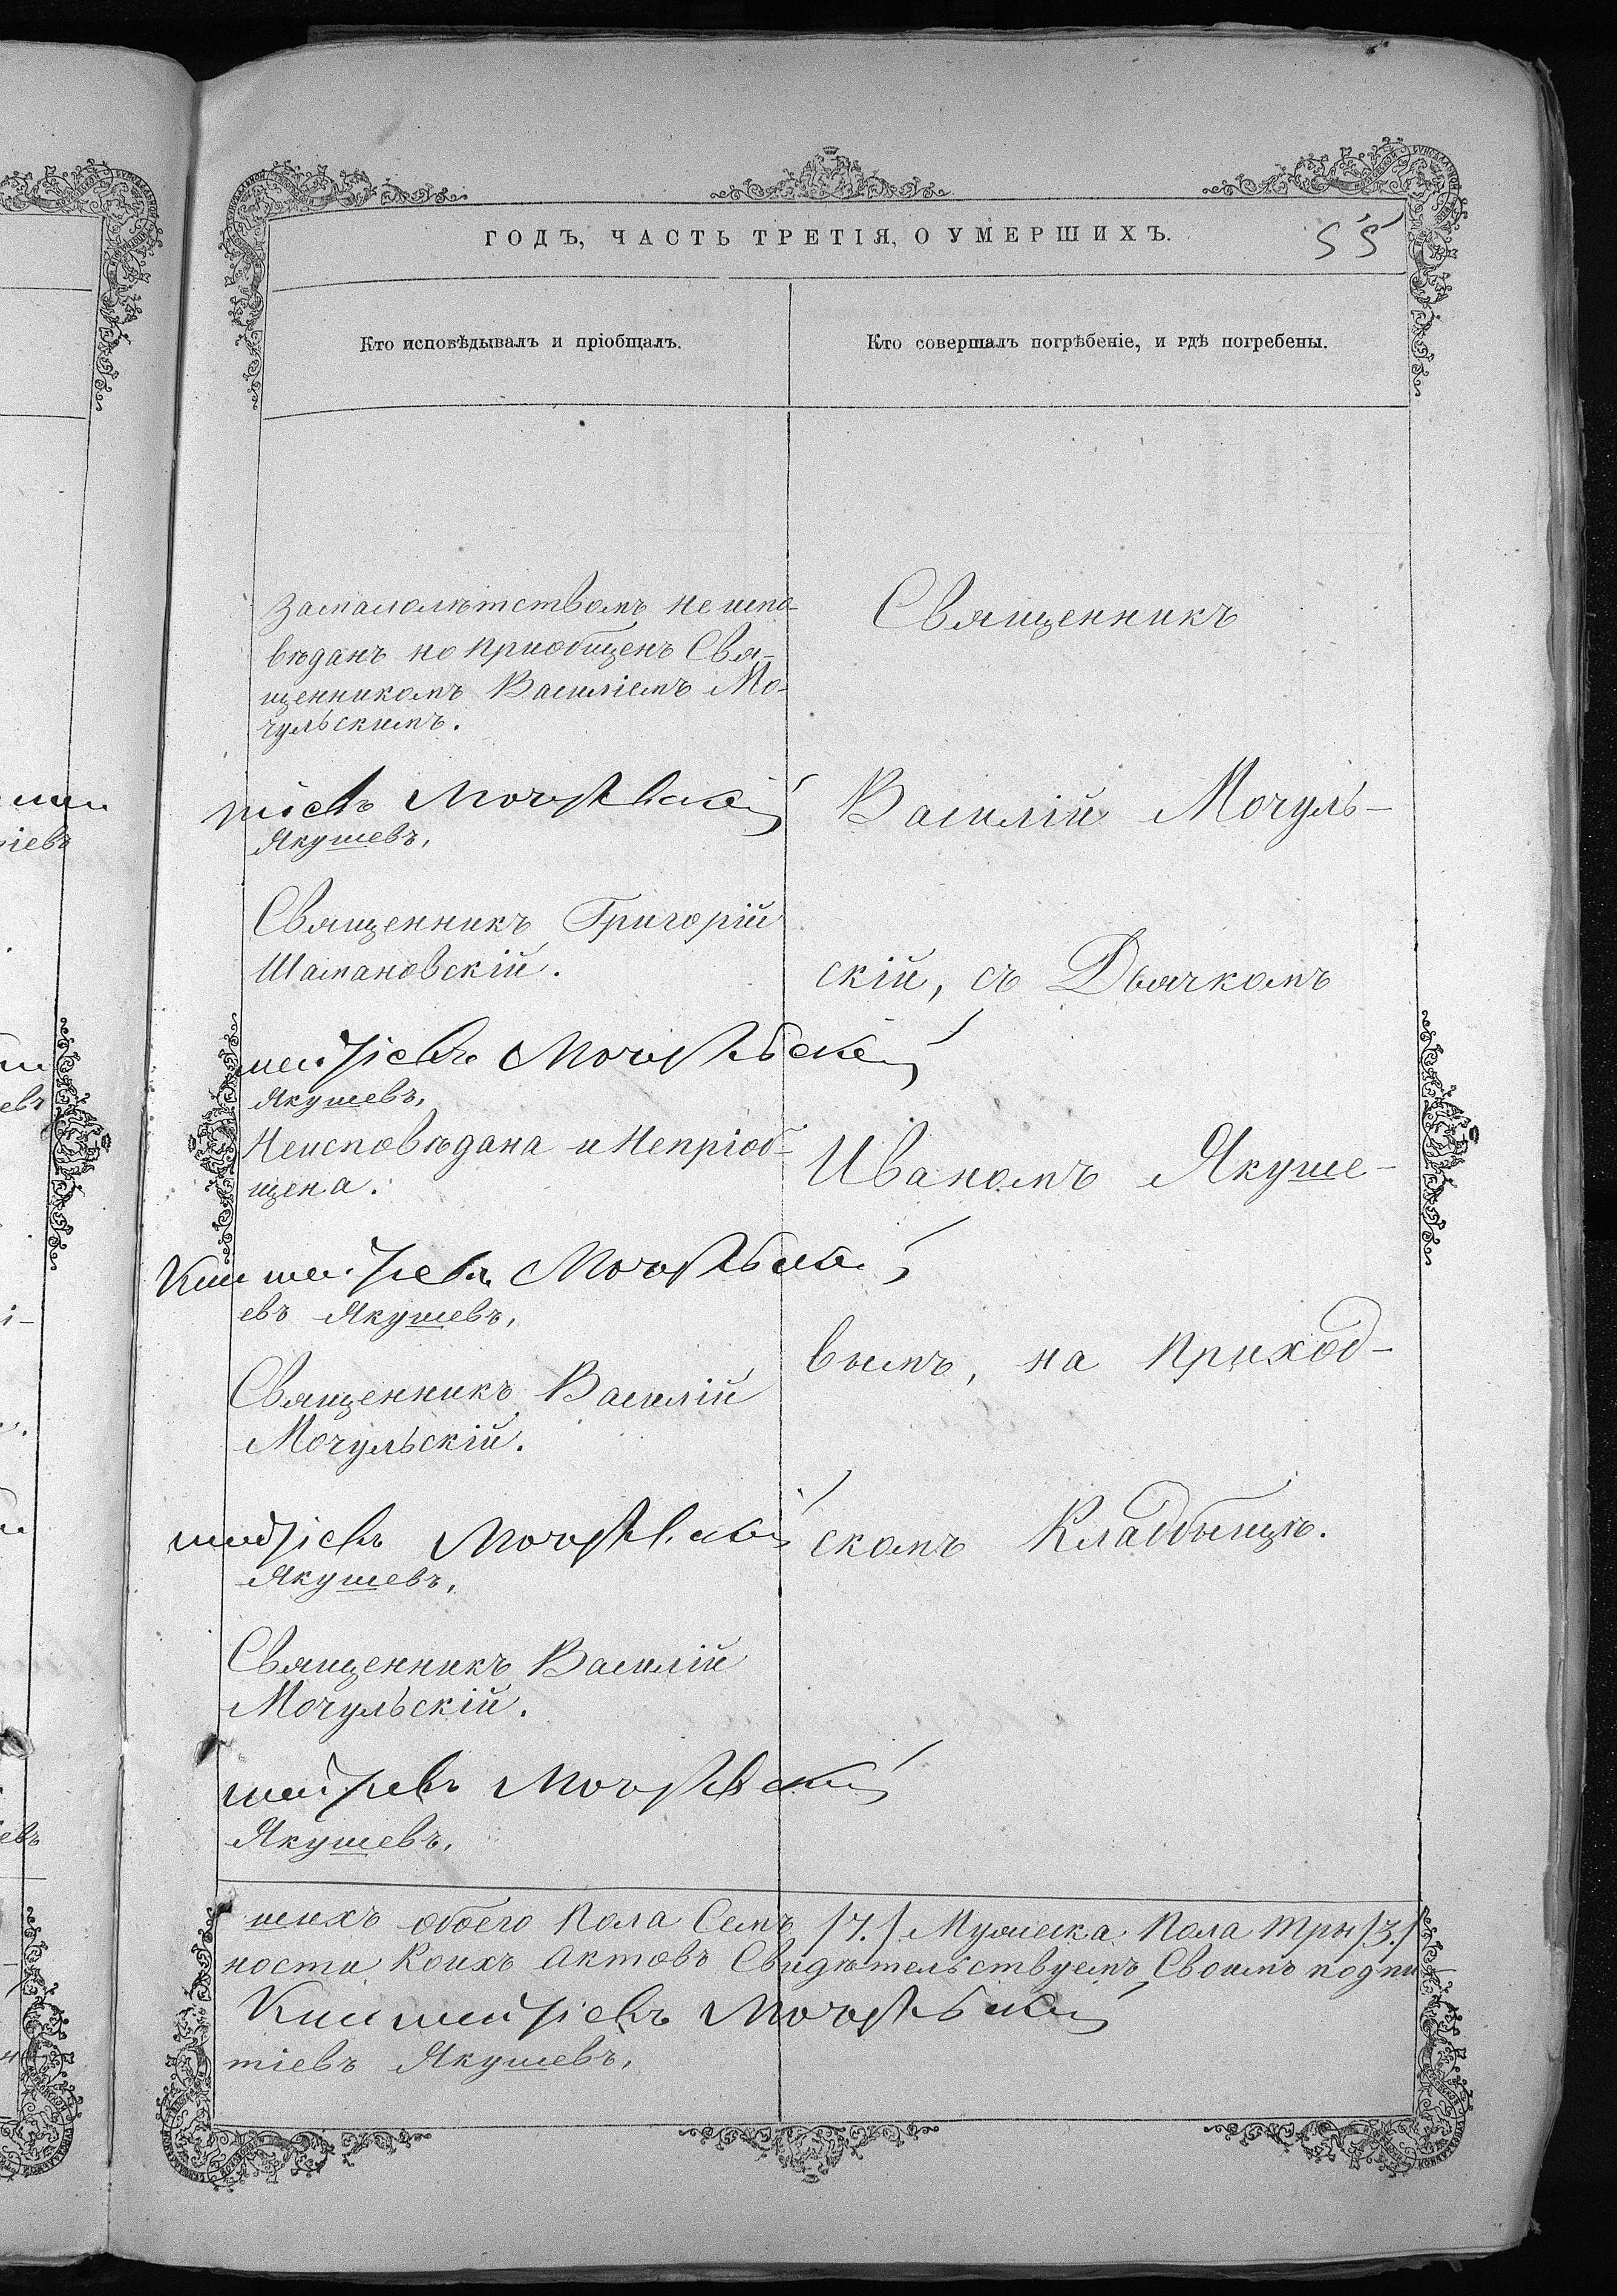 ГОДЪ, ЧАСТЬ ТРЕТІЯ, О УМЕРШИХЪ.
55
Кто исповѣдывалъ и пріобщалъ.
Кто совершалъ погрѣбеніе, и гдѣ погребены.
За малолѣтствомъ не испо-
вѣданъ но приобщенъ Свя-
щенникомъ Василіемъ Мо-
чульскимъ.
Мочульскій
Якушевъ,
Священникъ Григорій
Шамановскій.
Мочульскій
Якушевъ,
Неисповѣдана и Непріоб-
щена.
Мочульскій
евъ Якушевъ,
Священникъ Василій
Мочульскій.
Мочульскій
Якушевъ,
Священникъ Василій
Мочульскій.
Мочульскій
Якушевъ,
Священникъ
Василій Мочуль-
скій, съ Дьячкомъ
Иваномъ Якуше-
вымъ, на приход-
скомъ Кладбищѣ.
шихъ обоего пола Семь /7./ Мужеска пола три /3./
ности коихъ актовъ Свидѣтельствуемъ Своимъ подпи-
Мочульскій
тіевъ Якушевъ,